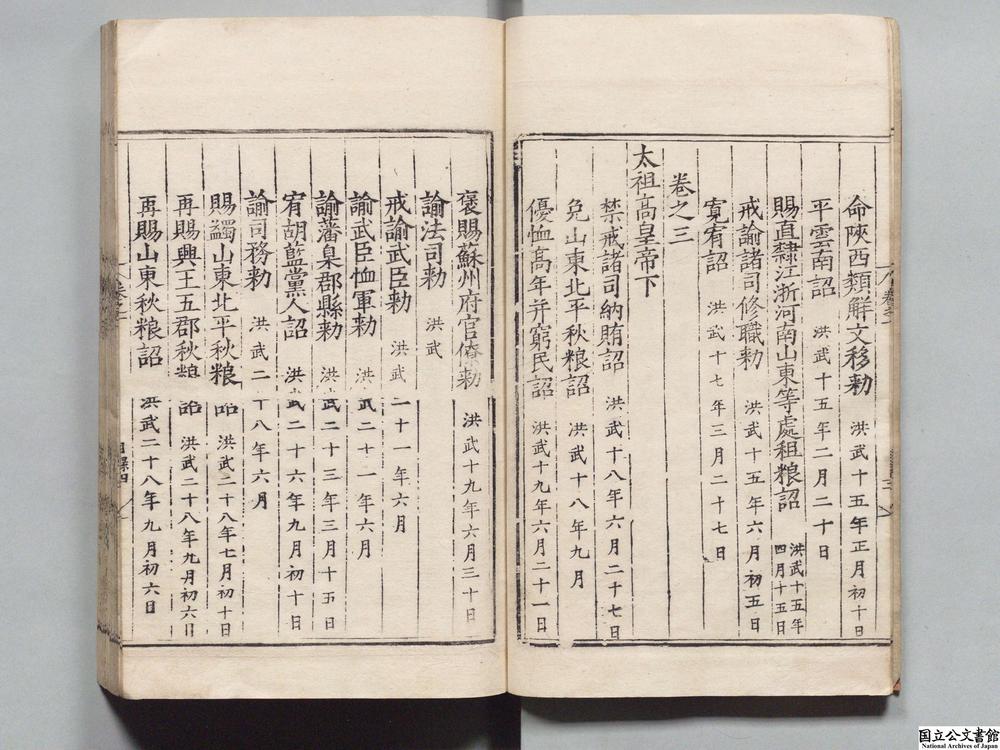 命陝西類解文移勅 洪武十五年正月初十日
平雲南詔 洪武十五年二月二十日
賜直隸江浙河南山東等處租粮詔 洪武十五年四月十五日
戒諭諸司修職勅 洪武十五年六月初五日
寬宥詔 洪武十七年三月二十七日
卷之三
太祖高皇帝下
禁戒諸司納賄詔 洪武十八年六月二十七日
免山東北平秋粮詔 洪武十八年九月
優恤髙年并窮民詔 洪武十九年六月二十一日
褒賜蘇州府官僚勅 洪武十九年六月三十日
諭法司勅 洪武
戒諭武臣勅 洪武二十一年六月
諭武臣恤軍勅 洪武二十一年六月
諭藩臬郡縣勅 洪武二十三年三月十五日
宥胡藍黨人詔 洪武二十六年九月初十日
諭司務勅 洪武二十八年六月
賜蠲山東北平秋粮詔 洪武二十八年七月初十日
再賜興王五郡秋粮詔 洪武二十八年九月初六日
再賜山東秋粮詔 洪武二十八年九月初六日
目錄四
国立公文書館
National Archives of Japan